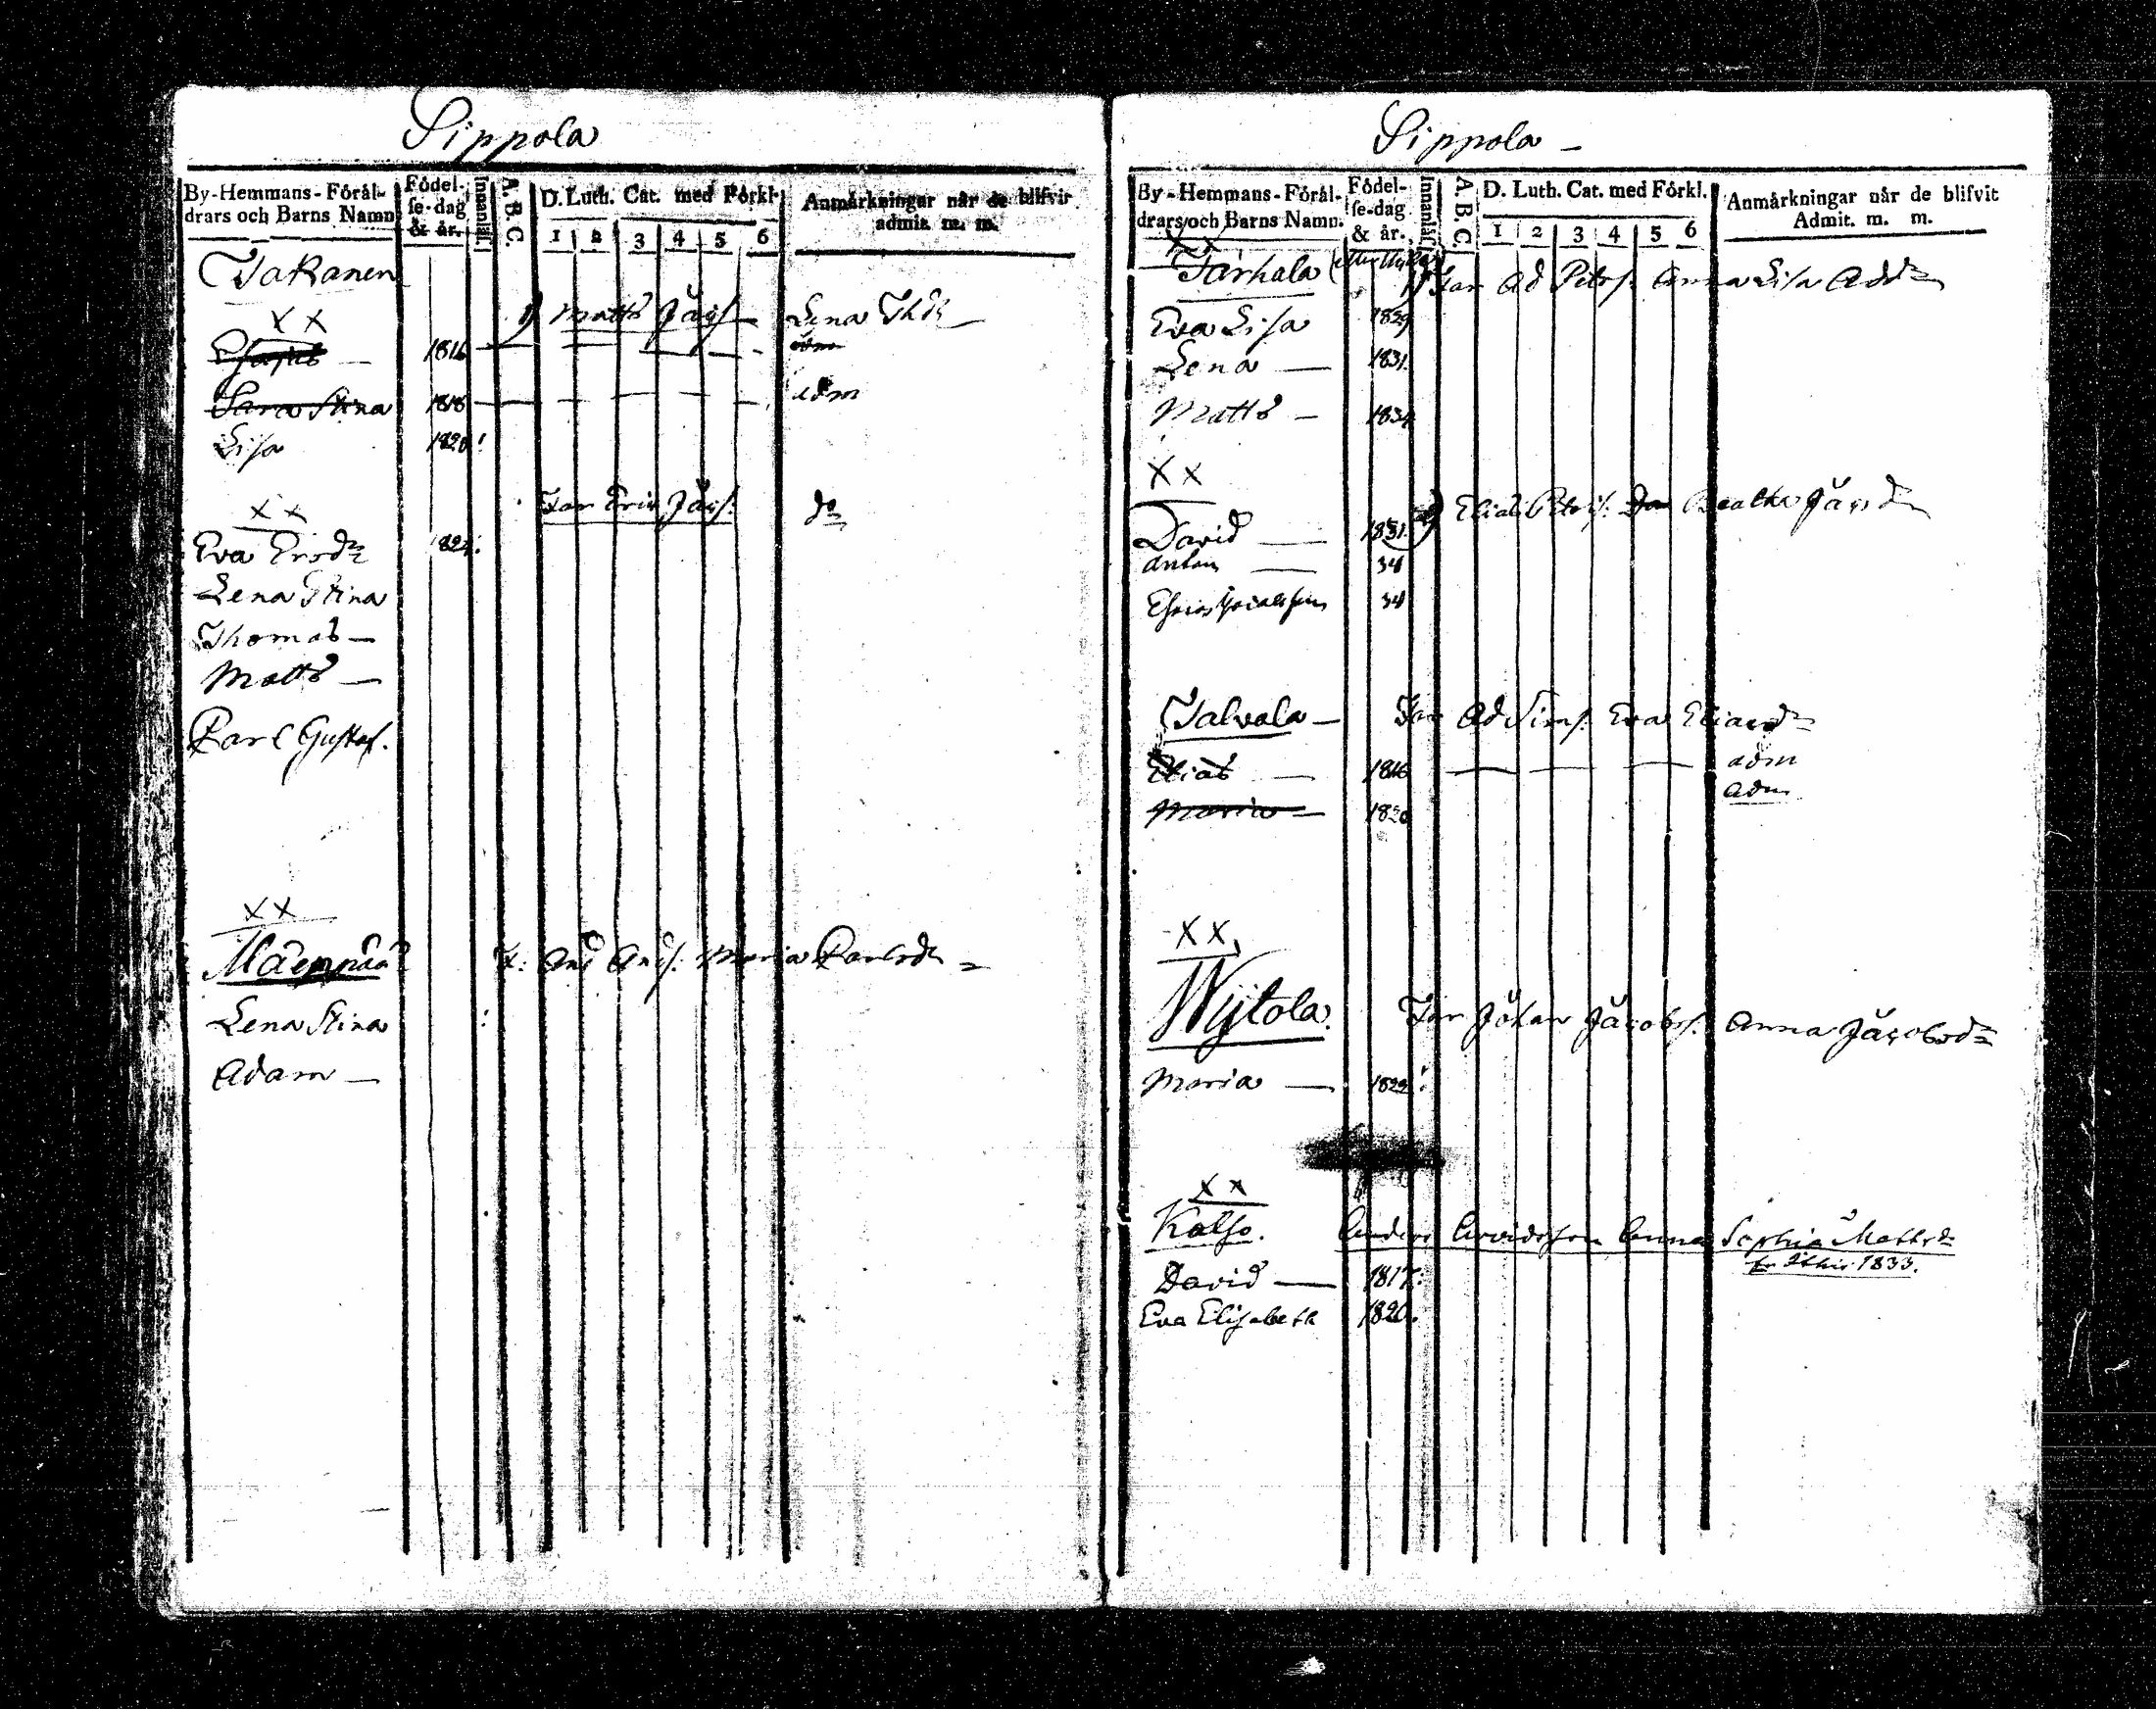 Sippola
By-Hemmans-Förål-
drars och Barns Namn
Födel-
se-dag
& år.
Innanläs.
A. B. C.
D. Luth. Cat. med Förkl.
1 2 3 4 5 6
Anmärkningar når de blifvit
admit. m. m.
Takanen
X X
1) Matts Jäcs. Lena Thdr
1816 — — — — — adm
Sara Stina 1818 — — — — — adm
Lisa 1820
X X
Far Eric Jäcs. do
Eva Ersdr 182
Lena Stina
Thomas —
Matts —
Karl Gustaf.
X X
Mäenpää F: And Ands. Maria Karlsdr
Lena Stina
Adam —
Sippola —
By-Hemmans-Förål-
drars och Barns Namn.
Födel-
se-dag
& år.
Innanläs.
A. B. C.
D. Luth. Cat. med Förkl.
1 2 3 4 5 6
Anmärkningar når de blifvit
Admit. m. m.
X X
Tarhala 1) Far Ad Petrs. Anna Lisa Addr
Eva Lisa 1829
Lena — 1831.
Matts — 1834
X X
Elias Petrs. Beatha Jäcsdr
David — 1831.
Anton — 34
34
Talvola — Far Ad Sims. Eva Eliaedr
Elias — 1816 — — — adm
Maria — 1820 adm
X X
Wijtola. Far Johan Jacobs. Anna Jacobsdr
Maria — 1822
X X
Kalso. Anders Arvidsson Anna Sophia Mattsdr
1833.
David — 1817.
Eva Elisabeth 1820.